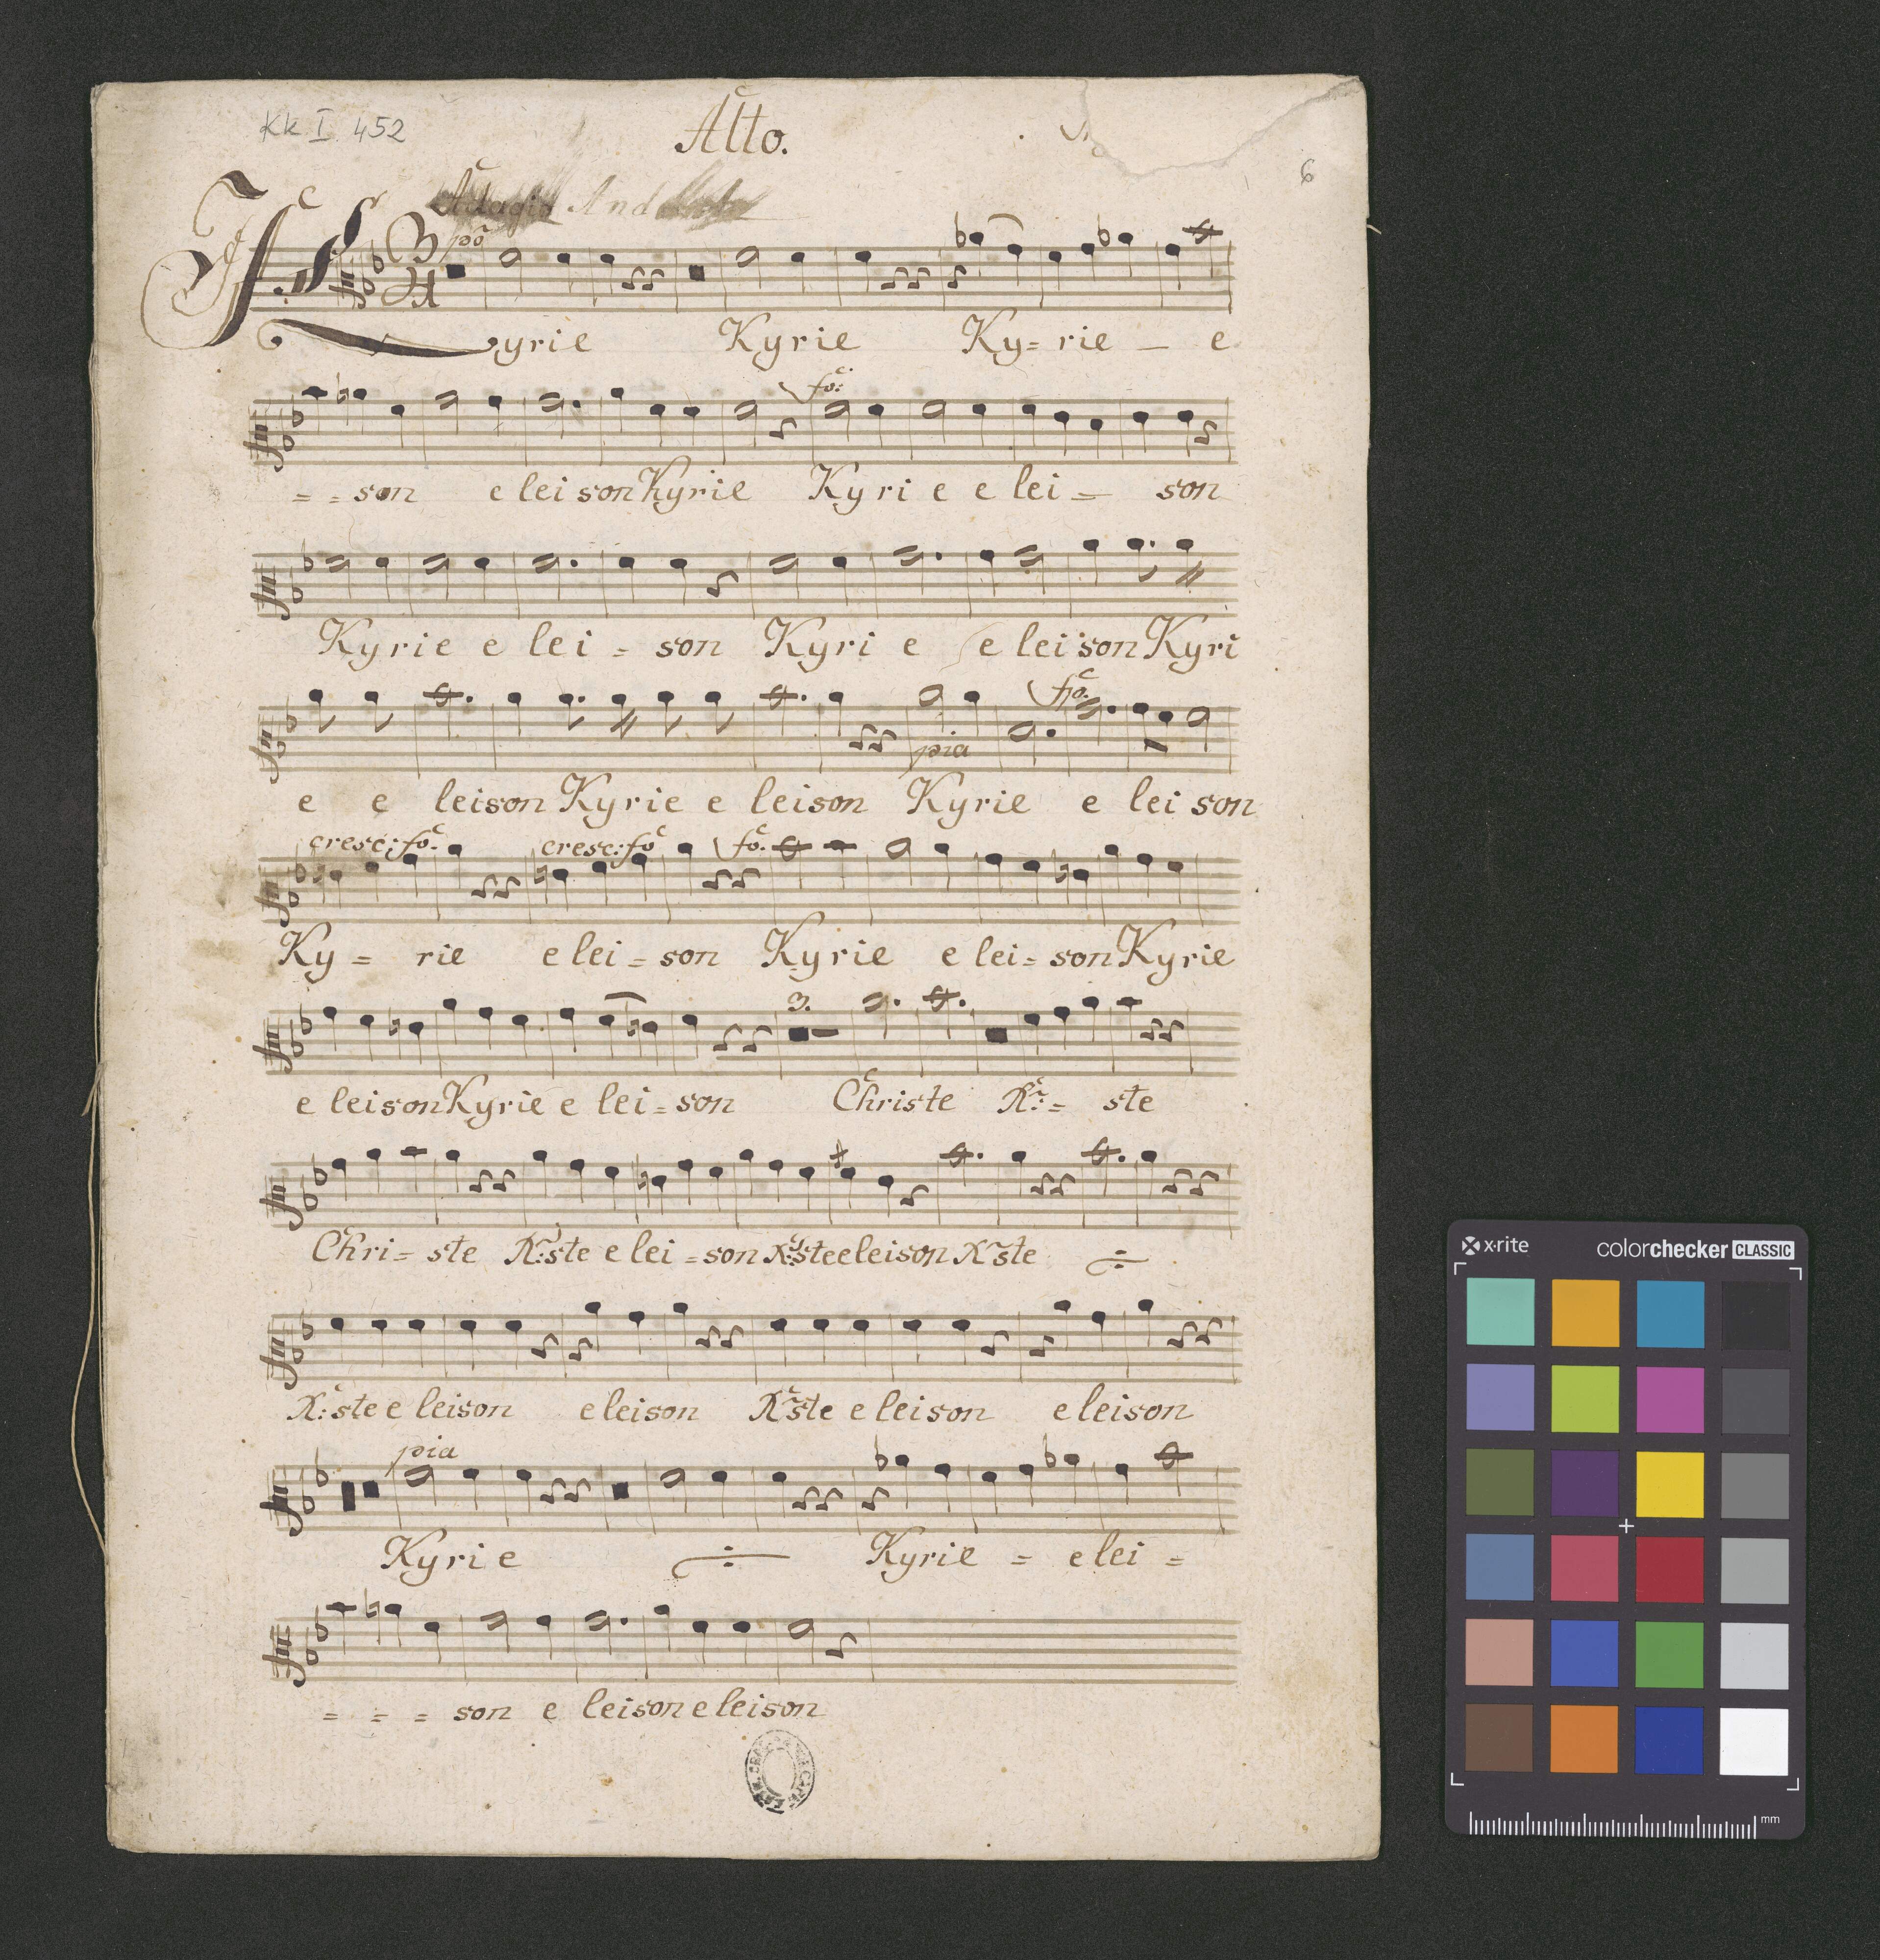 Kk I. 452
Alto.
6
Adagio And
po
Kyrie Kyrie Ky= rie _ e
fo:
= = son e lei son Kyrie Ky ri e e lei = son
Kyrie e lei = son Kyri e e lei son Kyri
fo.
pia
e e leison Kyrie e leison Kyrie e lei son
cresc: fo. cresc: fo fo.
Ky = rie e lei = son Kyrie e lei = son Kyrie
3.
e leison Kyrie e lei = son Christe X: = ste
Chri = ste X:ste e lei = son X:ste eleison Xste
X: ste e leison eleison Xste e leison eleison
pia
Kyri e Kyrie = elei =
= = = son e leison e leison
x-rite colorchecker CLASSIC
mm